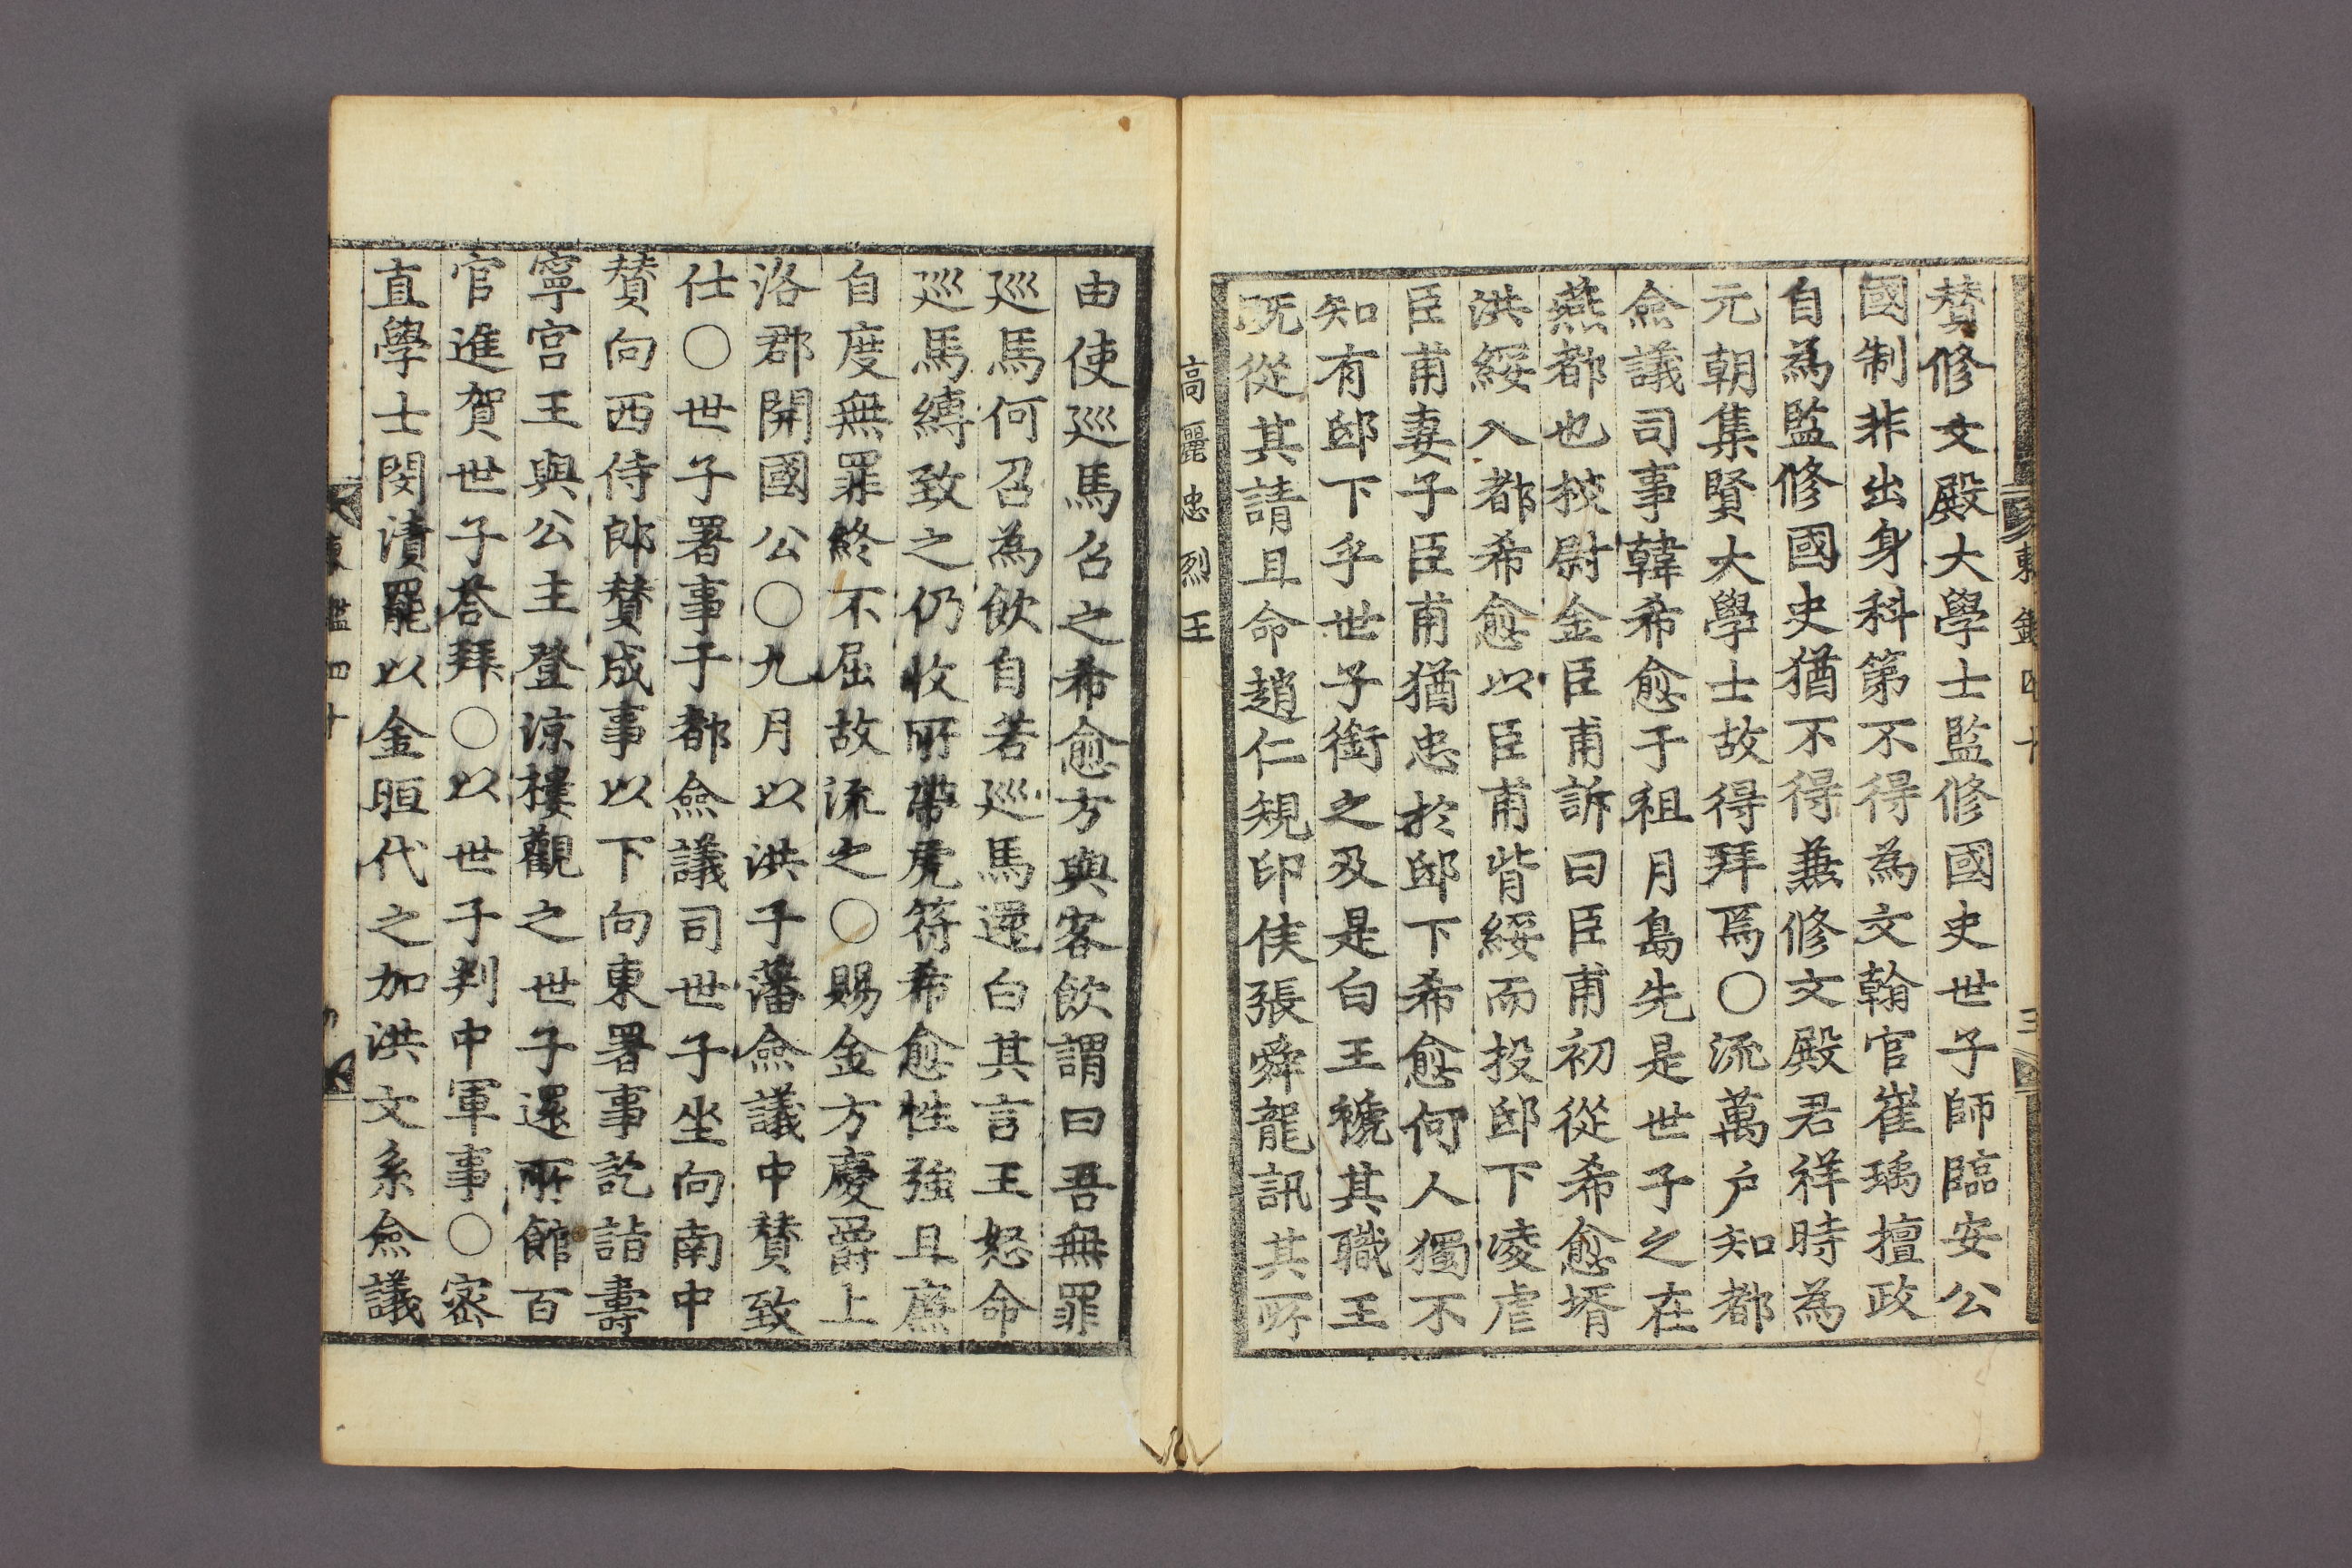 東鑑四十 三
賛修文殿大學士監修國史世子師臨安公
國制非出身科第不得為文翰官崔瑀擅政
自為監修國史猶不得兼修文殿君祥時為
元朝集賢大學士故得拜焉○流萬户知都
僉議司事韓希愈于祖月島先是世子之在
燕都也校尉金臣甫訴曰臣甫初從希愈壻
洪綏入都希愈以臣甫背綏而投邸下凌虐
臣甫妻子臣甫猶忠於邸下希愈何人獨不
知有邸下乎世子銜之及是白王褫其職王
既從其請且命趙仁規印侯張舜龍訊其所
高麗忠烈王
由使廵馬召之希愈方與客飲謂曰吾無罪
廵馬何召為飲自若廵馬還白其言王怒命
廵馬縛致之仍收所帶虎符希愈性強且廉
自度無罪終不屈故流之○賜金方慶爵上
洛郡開國公○九月以洪子藩僉議中賛致
仕○世子署事于都僉議司世子坐向南中
賛向西侍郎賛成事以下向東署事訖詣壽
寧宮王與公主登涼樓觀之世子還所館百
官進賀世子荅拜○以世子判中軍事○宻
直學士閔漬罷以金晅代之加洪文系僉議
東鑑四十